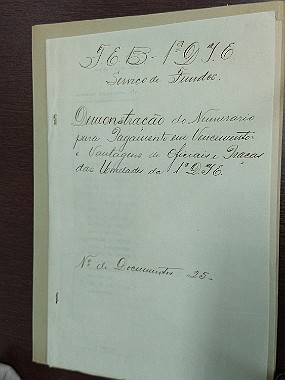 F E B - 1ª D.I.E
Serviço de Fundos.
Demonstração do Numerario
para Pagamento em Vencimentos
e Vantagens de Oficiais e Praças
das Unidades da 1ª D.I.E.
Nº de Documentos 25-